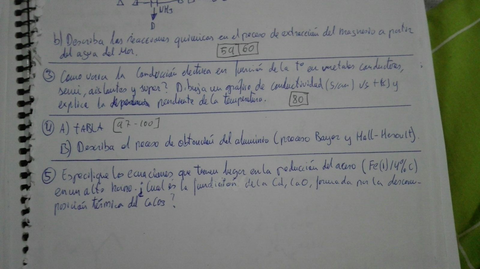 Δ
NH3
D
b) Describa las reacciones químicas en el proceso de extracción del magnesio a partir
del agua del Mar. 59/60
③ Como varia la Conducción electrica en función de la tº en metales conductores,
semi, aislantes y super? Dibuja un grafico de conductividad (S/cm) vs t(k) y
explica la dependencia pendiente de la temperatura. 80
④ A) tABLA 97-100
B) Describa el proceso de obtención del aluminio (proceso Bayer y Hall-Heroult)
⑤ Especifique las ecuaciones que tienen lugar en la producción del acero (Fe(l)/4% C)
en un alto horno. ¿Cual es la función de la Cal, CaO, formada por la descom-
posición térmica del CaCO3?